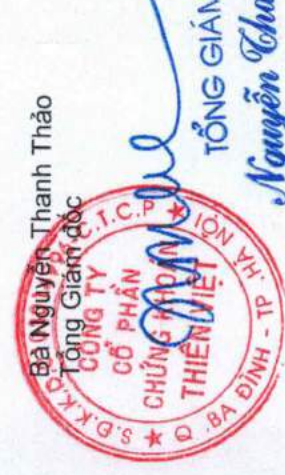 Bà Nguyễn Thanh Thảo
Tổng Giám đốc
C.T.C.P
CÔNG TY
CỔ PHẦN
CHỨNG KHOÁN
THIÊN VIỆT
Q. BA ĐÌNH - TP. HÀ NỘI
S.Đ.K.K.D
TỔNG GIÁM
Nguyễn Tha